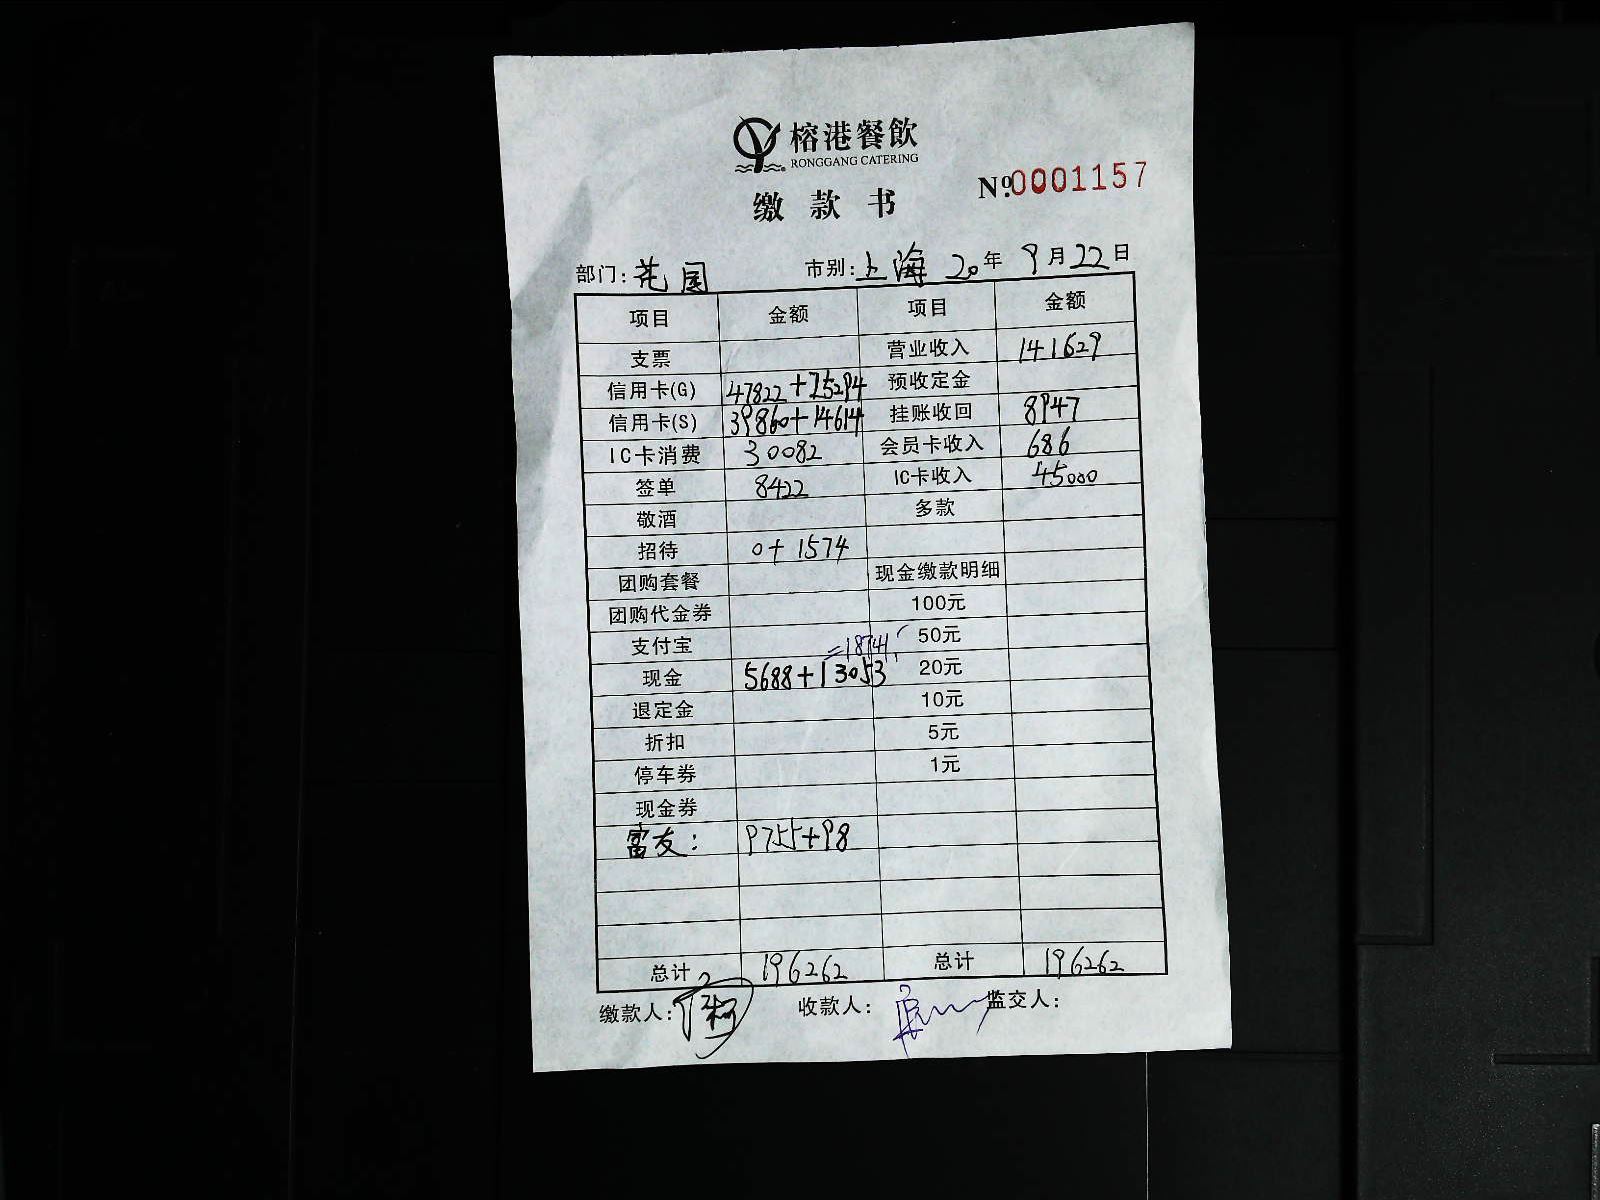 榕港餐飲
RONGGANG CATERING
缴款书
№0001157
部门：花园 市别：上海 20年 9月22日
项目 金额 项目 金额
支票 营业收入 141629
信用卡(G) 47822+25294 预收定金
信用卡(S) 39860+14614 挂账收回 8947
IC卡消费 30082 会员卡收入 686
签单 8422 IC卡收入 45000
敬酒 多款
招待 0+1574
团购套餐 现金缴款明细
团购代金券 100元
支付宝 =18741 50元
现金 5688+13053 20元
退定金 10元
折扣 5元
停车券 1元
现金券
富友： 9755+98
总计 196262 总计 196262
缴款人： 收款人： 监交人：